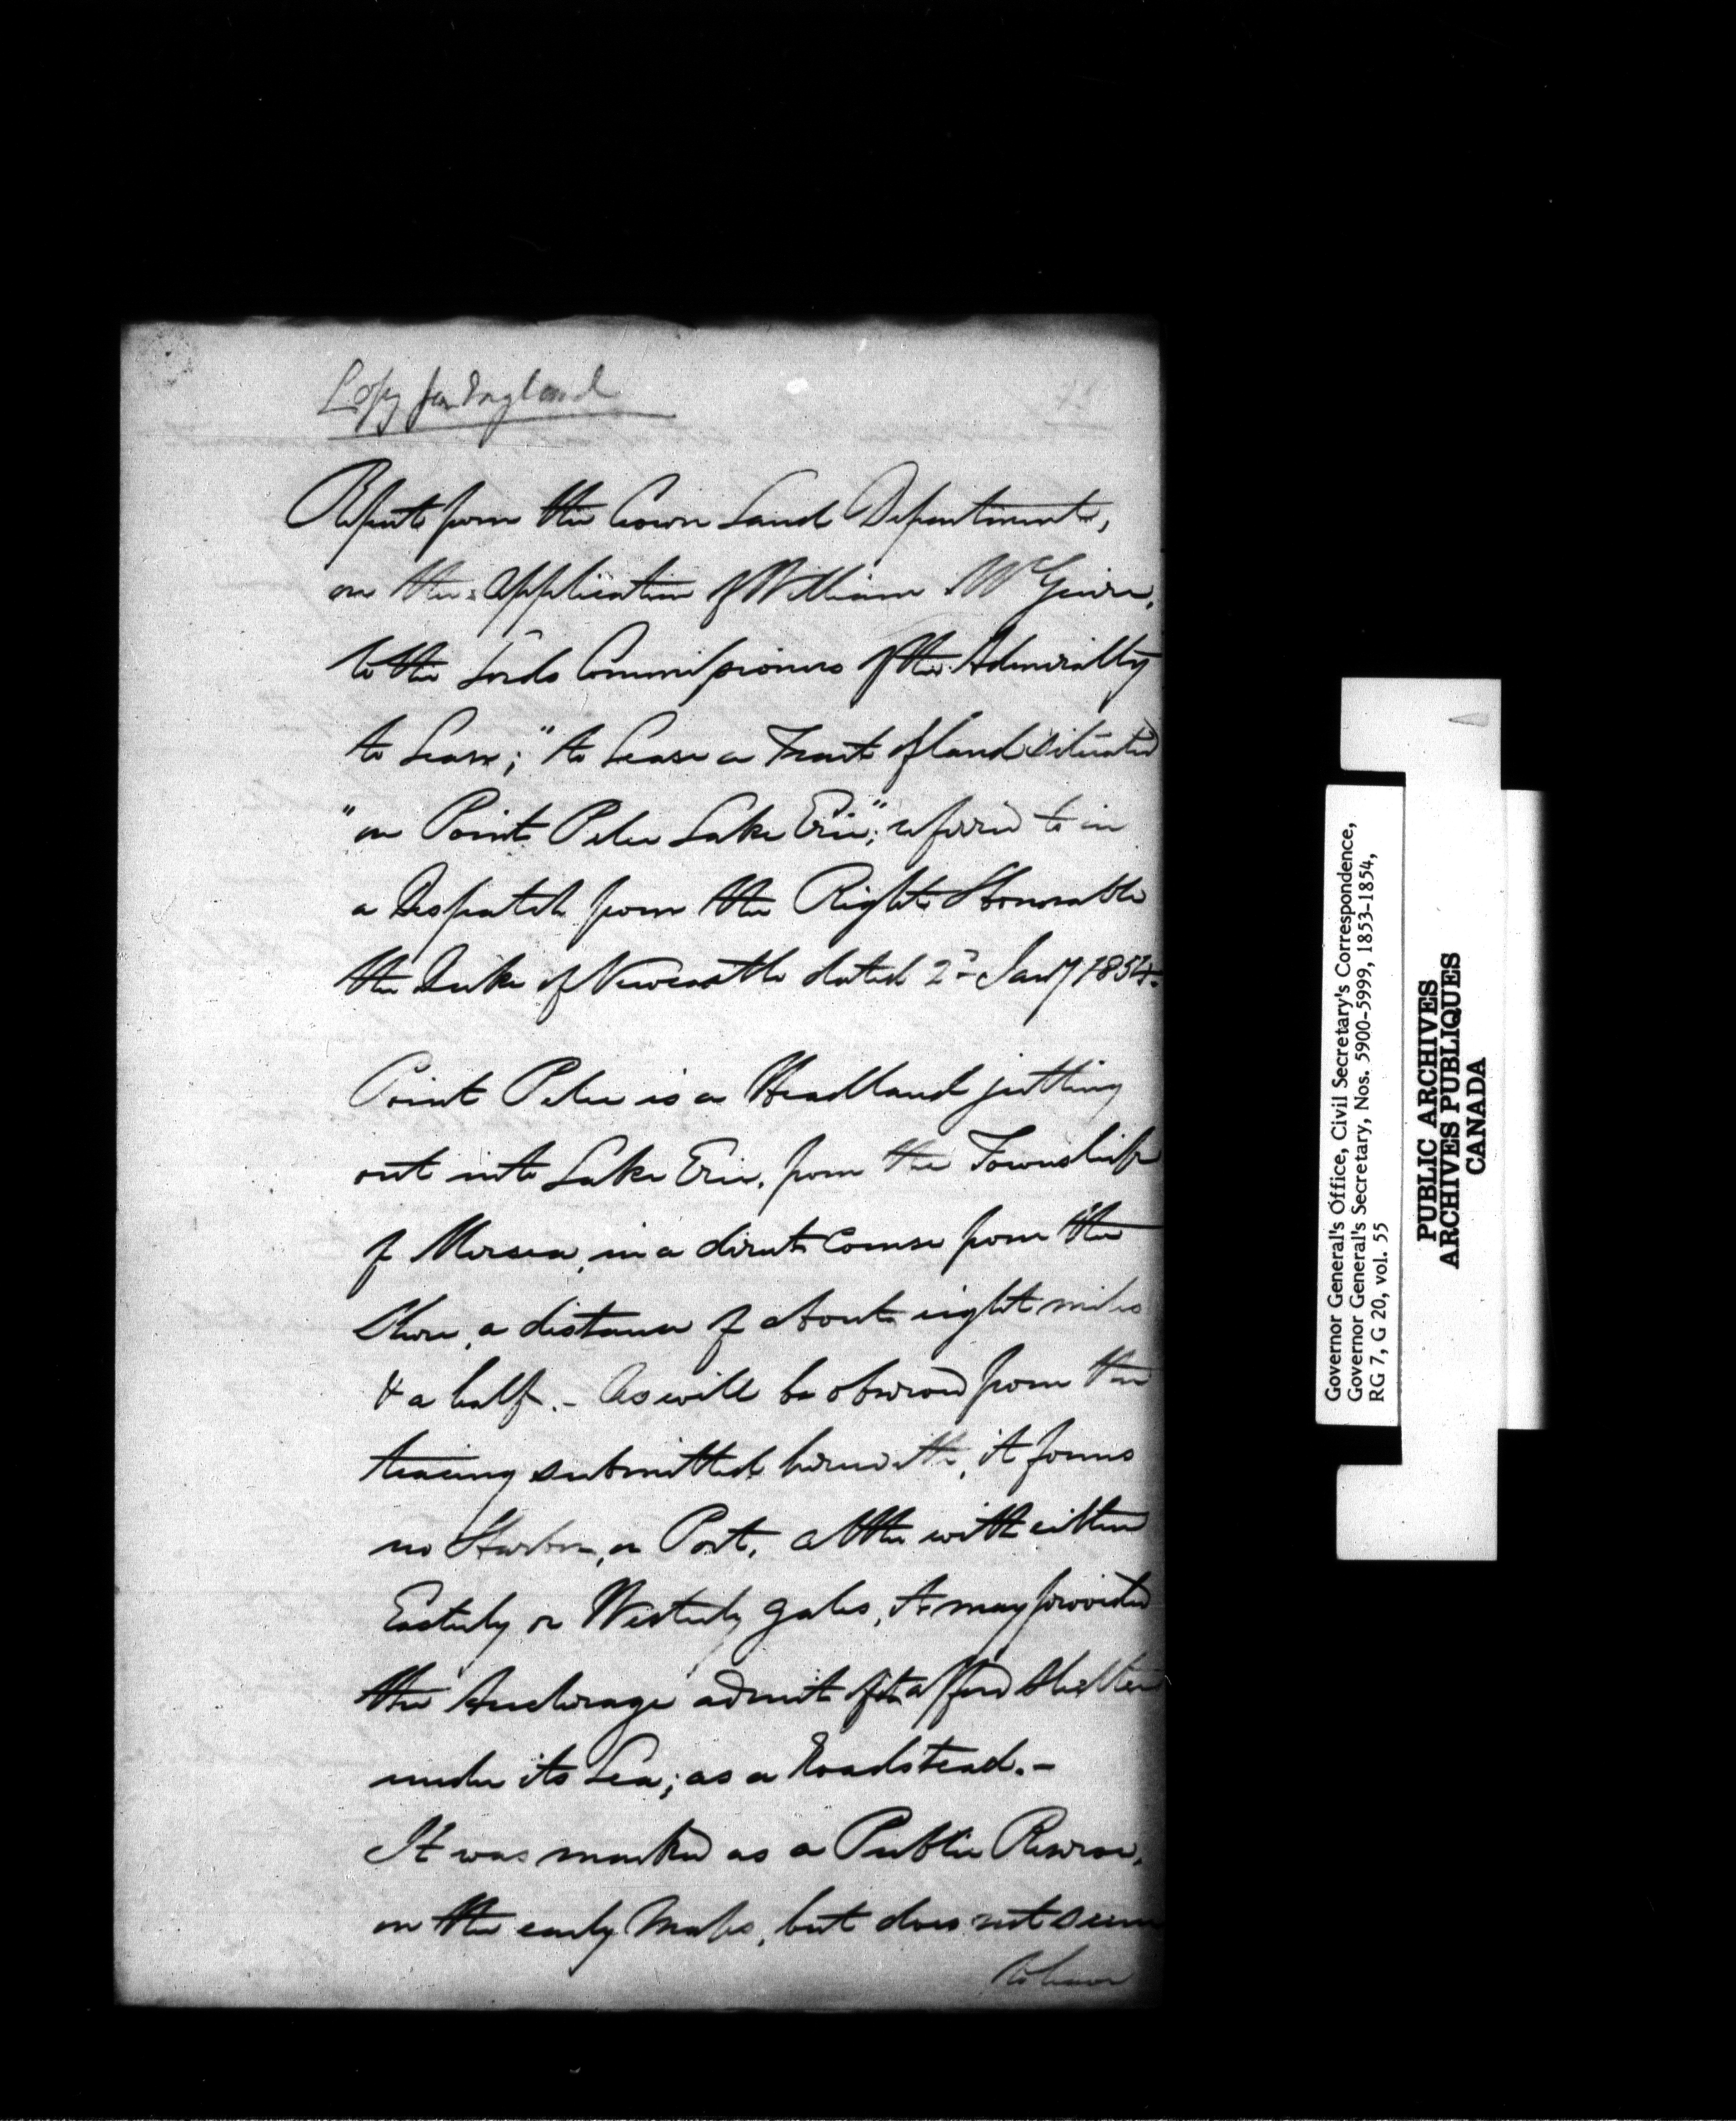 Copy for England
Report from the Crown Land Department,
on the application of William McGuire,
to the Lords Commissioners of the Admiralty
to Lease; "to Lease a Tract of land situated
"on Point Pelee Lake Erie;" referred to in
a Despatch from the Right Honorable
the Duke of Newcastle dated 2d Jany 1854.
Point Pelee is a Headland jutting
out into Lake Erie, from the Township
of Mersea, in a direct course from the
Shore, a distance of about eight miles
& a half. - As will be observed from the
tracing submitted herewith, it forms
no Harbor, or Port, altho with either
Easterly or Westerly gales, it may provided
the Anchorage admit of it afford shelter
under its Lea; as a Roadstead. -
It was marked as a Public Reserve,
on the early Maps, but does not seem
to have
Governor General's Office, Civil Secretary's Correspondence,
Governor General's Secretary, Nos. 5900-5999, 1853-1854,
RG 7, G 20, vol. 55
PUBLIC ARCHIVES
ARCHIVES PUBLIQUES
CANADA